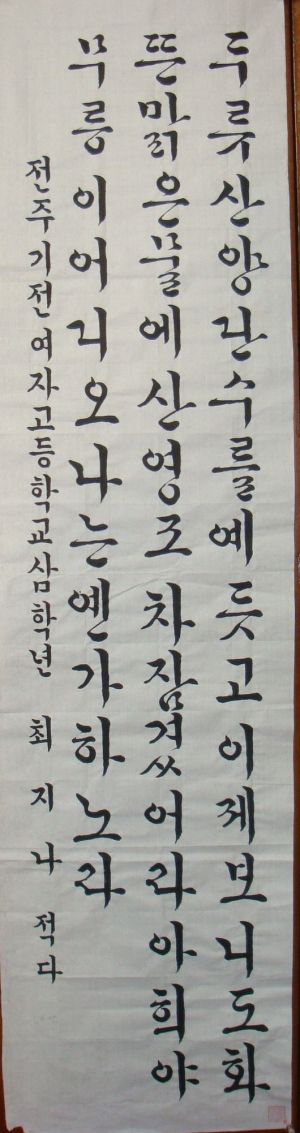 두류산양단수를예듯고이제보니도화
뜬맑은물에산영조차잠겼어라아희야
무릉이어디오나는옌가하노라
전주기전여자고등학교삼학년 최지나 적다